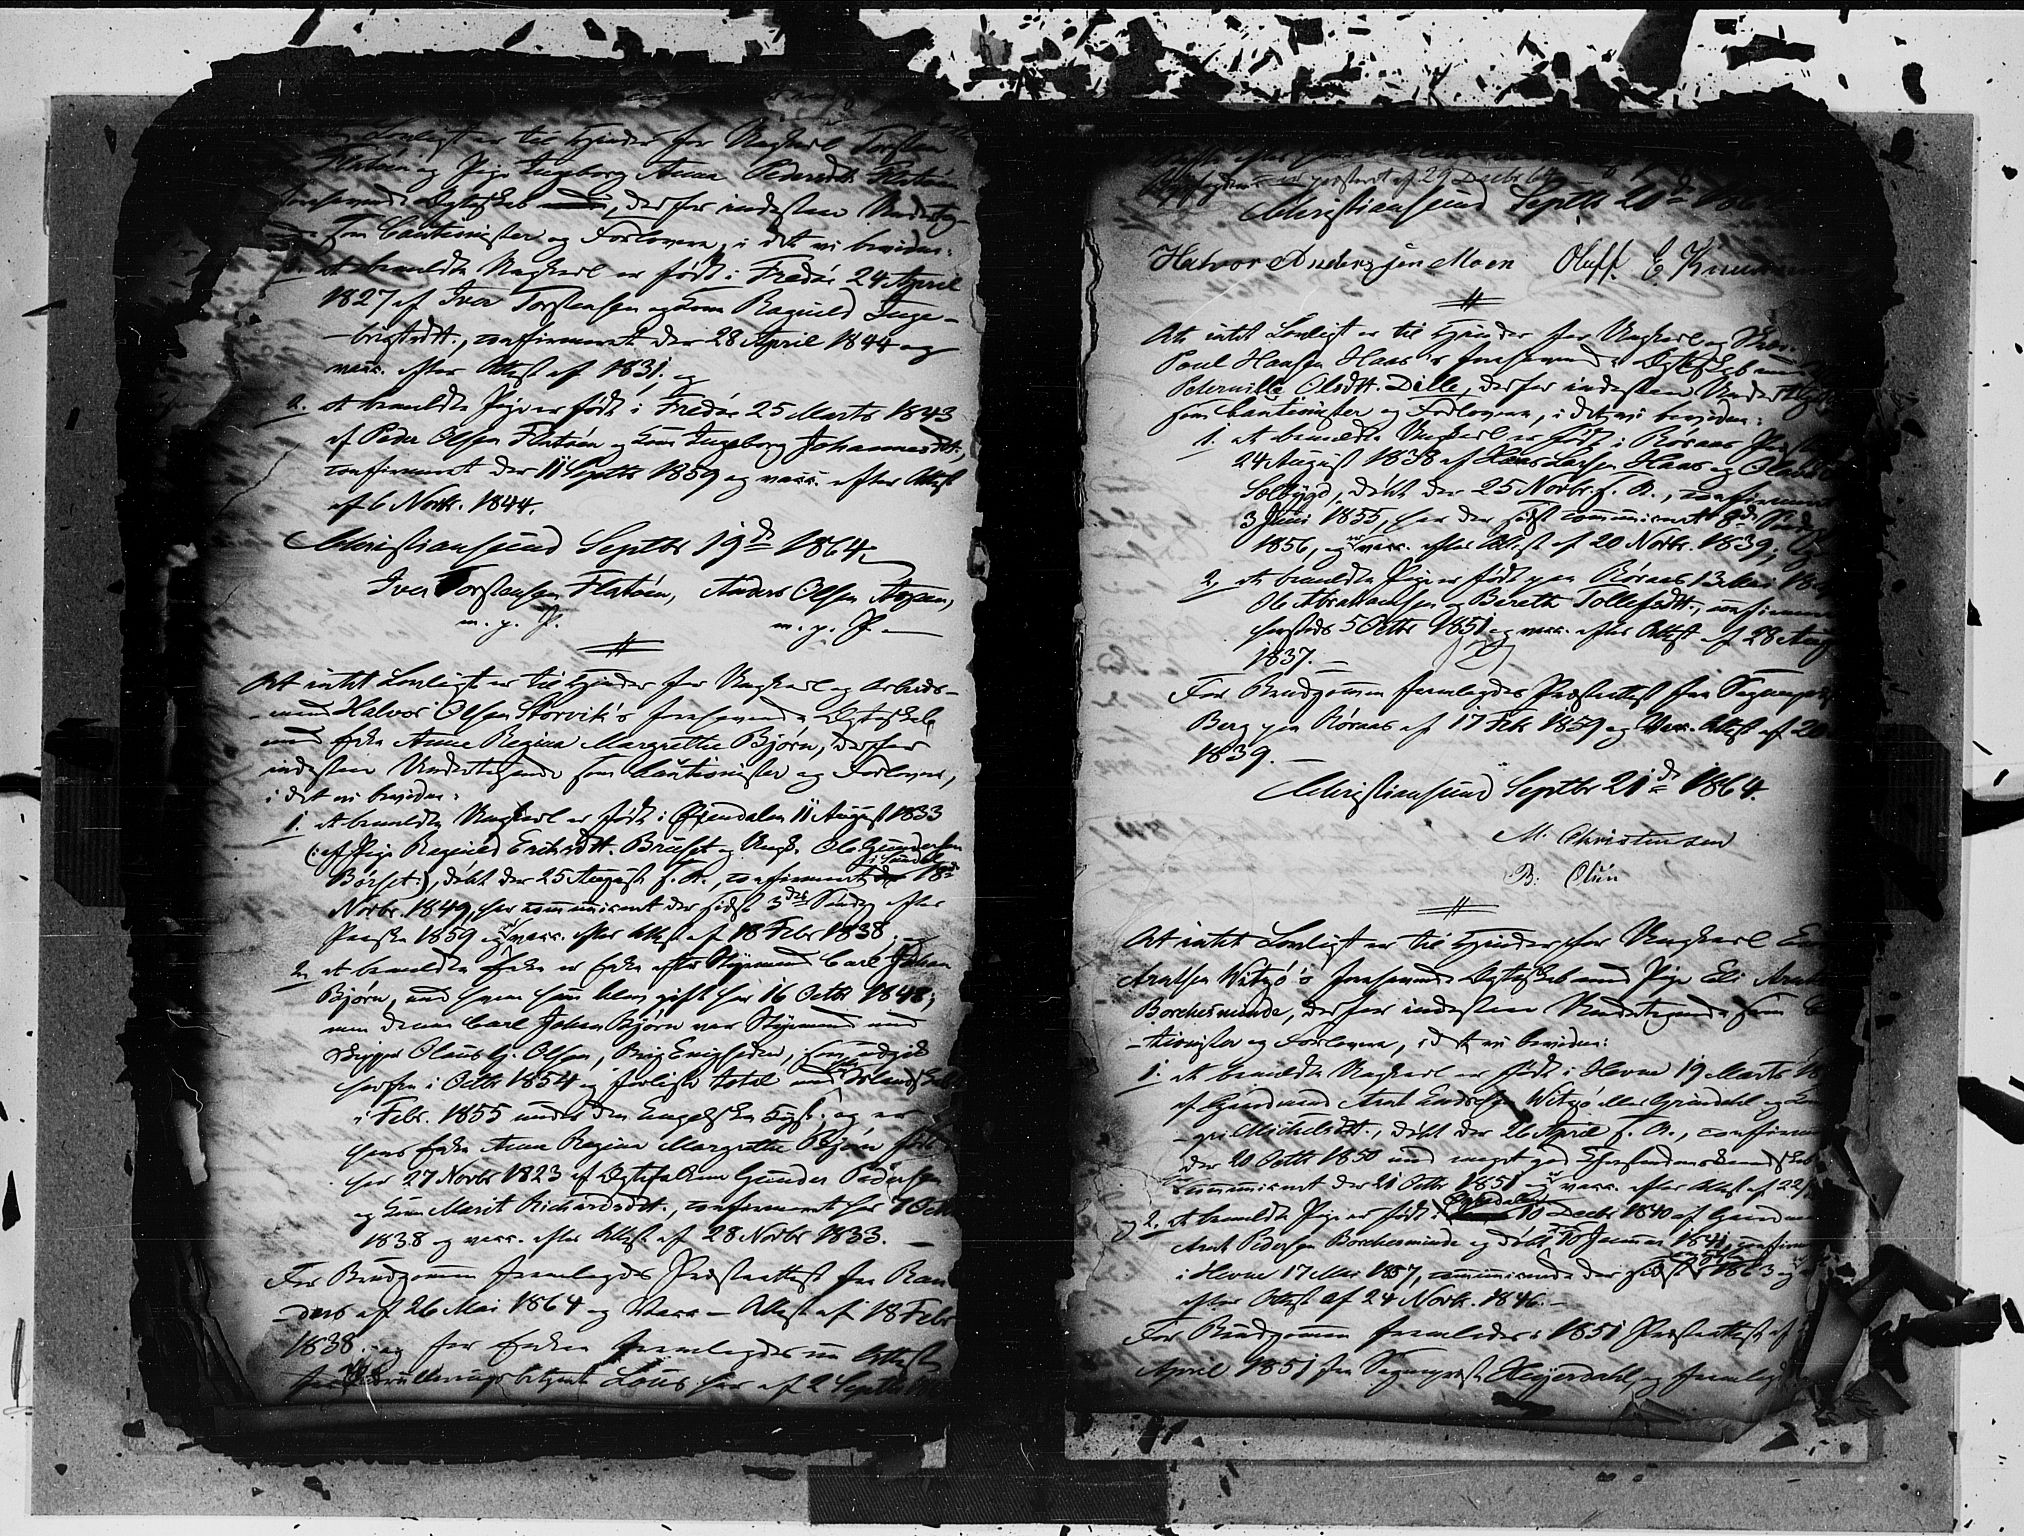 Lovligt er til Hinder for Ungkarl Torsten
Flatøen og Pige Ingeborg Anna Pedersdtr Flatøen
forehavende Ægteskab, derfor indestaae Underteg-
som Cautionister og Forlovere, i det vi bevidne:
at bemeldte Ungkarl er født i Fredø 24 April
1827 af Iver Torstensen og Kone Ragnild Inge-
brigtsdtt., confirmeret der 28 April 1844 og
vacc. efter Attest af 1831; og
2. at bemeldte Pige er født i Fredø 25 Marts 1843
af Peder Olsen Flatøen og Kone Ingeborg Johannesdtt.
confirmeret der 11 Septbr 1859 og vacc. efter Attest
af 6 Novbr. 1844.
Christiansund Septbr 19de 1864.
Iver Torstensen Flatøen, Anders Olsen
m. p. P. m. p. P.
At intet Lovligt er til Hinder for Ungkarl og Arbeids-
mand Halvor Olsen Storvik's forehavende Ægteskab
med Enke Anne Regina Margrethe Bjørn, derfor
indestaae Undertegnede som Cautionister og Forlovere,
i det vi bevidne:
1. at bemeldte Ungkarl er født i Øxendalen 11 August 1833
(: af Pige Ragnild Erichsdtt. Bruset og Ungk. Ole Gundersen
Børset :), døbt der 25 August s. A., confirmeret i Sundal 18de
Novbr. 1849, har communiceret der sidst 3die Søndag efter
Paaske 1859 og er vacc. efter Attest af 18 Febr 1838.
2. at bemeldte Enke er Enke efter Styrmand Carl Johan
Bjørn, med hvem hun blev gift her 16 Octbr 1848;
men denne Carl Johan Bjørn var Styrmand med
Skipper Olaus G. Olsen, Brig Enigheden, som udgik
herfra i Octbr 1854 og forliste total
i Febr. 1855 under den Engelske Kyst; og er
hans Enke Anne Regina Margrethe Bjørn født
her 27 Novbr 1823 af Ægtefolkene Gunder Pedersen
og Kone Marit Richardsdtt., confirmeret her 7 Octbr
1838 og vacc. efter Attest af 28 Novbr 1833.
For Brudgommen fremlagdes Præsteattest fra Ran-
ders af 26 Mai 1864 og Vacc-Attest af 18 Febr
1838. og for Enken fremlagdes en Attest
fra Mønstringsbetjent Lous her af 2 Septbr
præsteret af 29 Decbr 64
Christiansund Septbr 20de 1864
Halvor Andersen Moen Oluff E. Knudsen
At intet Lovligt er til Hinder for Ungkarl og
Poul Hansen Haas's forehavende Ægteskab med
Peternille Olsdtt. Dille, derfor indestaae Undertegnede
som Cautionister og Forlovere, i det vi bevidne:
1. at bemeldte Ungkarl er født i Roraas
24 August 1838 af Hans Larsen Haas og
Sælbygd, døbt der 25 Novbr. s. A., confirmeret
3 Juni 1855, har der sidst communiceret 8de
1856, og er vacc. efter Attest af 20 Novbr. 1839; og
2. at bemeldte Pige er født paa Røraas 13 Mai
Ole Abrahamsen og Bereth Tollefsdtt., confirmeret
sammesteds 5 Octbr 1851 og vacc. efter Attest af 28 Aug
1837.
For Brudgommen fremlagdes Præsteattest fra Sognepræst
Berg paa Røraas af 17 Febr 1859 og Vacc. Attest af 20
1839.
Christiansund Septbr 21de 1864.
M. Christensen
B. Olsen
At intet Lovligt er til Hinder for Ungkarl
Arntsen Witsø's forehavende Ægteskab med Pige Eli Arnts
Borchesminde, derfor indestaae Undertegnede som Cau-
tionister og Forlovere, i det vi bevidne:
1. at bemeldte Ungkarl er født i Hevne 19 Marts
af Gaardmand Arnt Endresen Witsø eller Grindahl og Kone
Michelsdtt., døbt der 26 April s. A., confirmeret
der 20 Octbr 1850 med meget god Christendomskundskab
communiceret der 21 Octbr 1851 og er vacc. efter Attest af 22
og 2. at bemeldte Pige er født i 10 Decbr 1840 af Gaardmand
Arnt Pedersen Borchesminde og døbt 10 Januar 1841, confirmeret
i Hevne 17 Mai 1857, communicerede der sidst 1863 og
efter Attest af 24 Novbr. 1846.
For Brudgommen fremlagdes Præsteattest af
April 1851 fra Sognepræst Heyerdahl, og fremlagdes